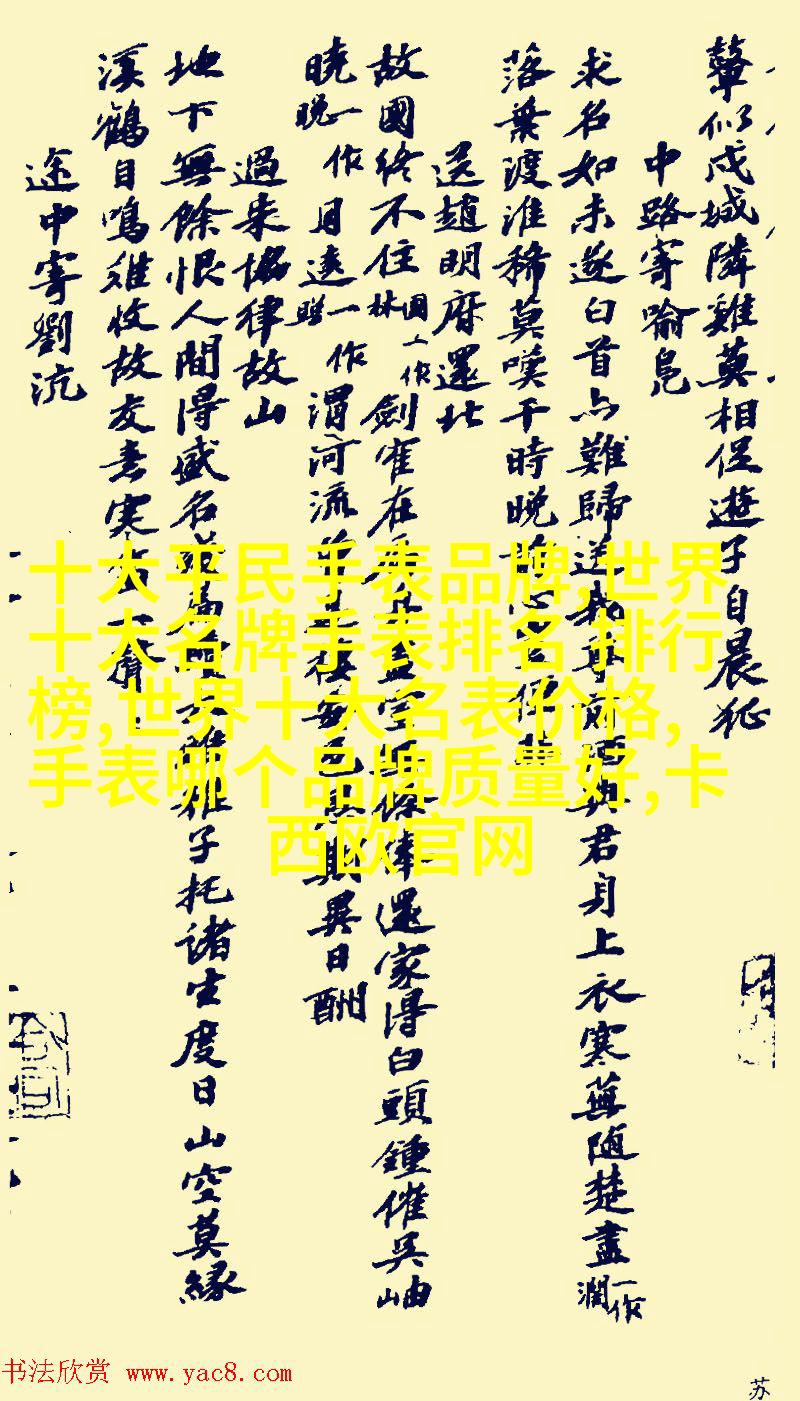 聲似戍城隣雞莫相促遊子自晨征
中路寄喻鳧
求名如未遂白首亦難歸送我尊前酒與君身上衣寒蕪隨楚盡
一作
潤
落葉渡淮稀莫嘆干時晚
送趙明府還北
故國終不住
國一作
林
劍在空還家得白頭鍾催吳岫
曉
一作
晚
月遠
一作
渭河流每異日酬
過朱協律故山
地下無餘恨人間得盛名子托諸生度日山空莫緣
溪鶴自鳴難收故友書
途中寄劉沆
十大平民手表品牌,世界
十大名牌手表排名,排行
榜,世界十大名表价格,
手表哪个品牌质量好,卡
西欧官网
书法欣赏 www.yac8.com
苏